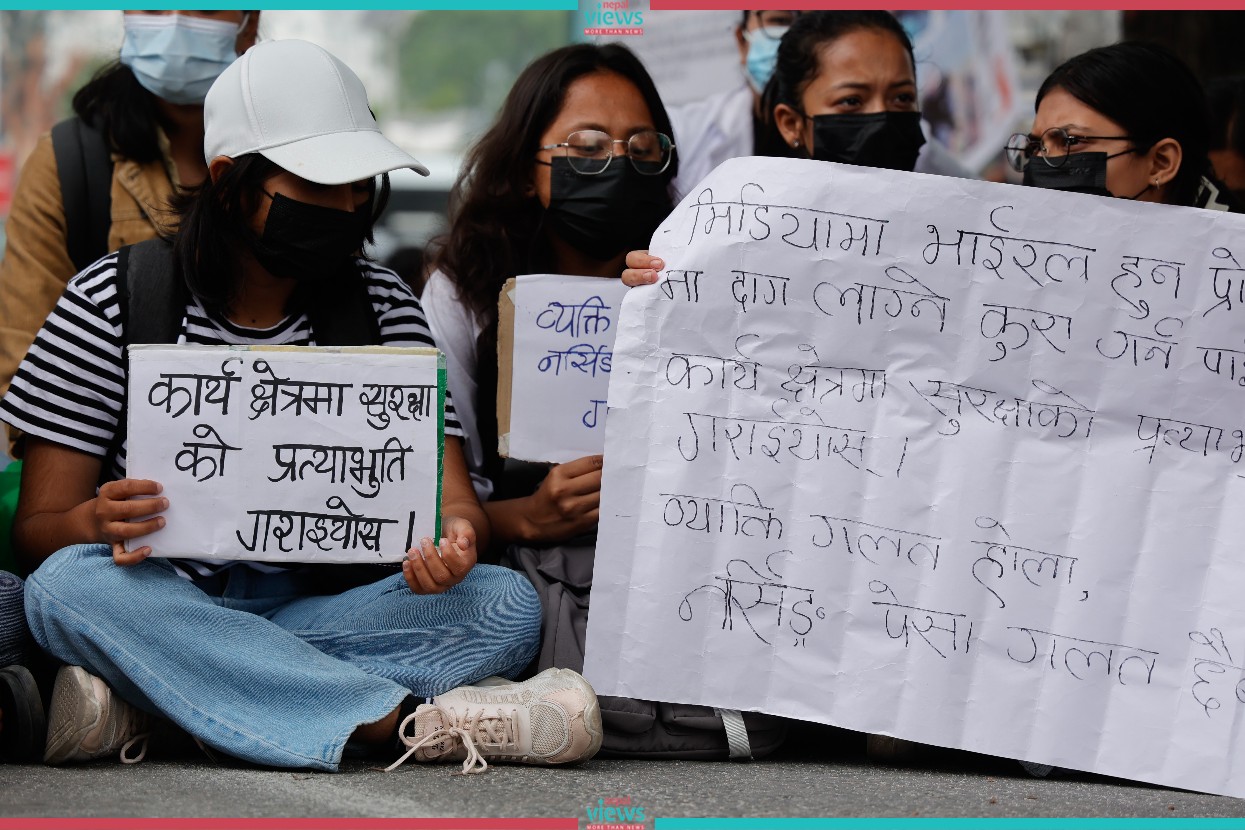 nepal
views
MORE THAN NEWS
कार्य क्षेत्रमा सुरक्षा
को प्रत्याभुति
गराइयोस् ।
व्यक्ति
नर्सिङ
ग
- मिडियामा भाईरल हुन
मा दाग लाग्ने कुरा गर्न
कार्य क्षेत्रमा सुरक्षाको
गराइयोस् ।
- व्याक्ति गलत होला,
नर्सिङ पेसा गलत
nepal
views
MORE THAN NEWS